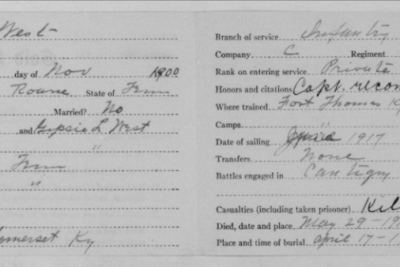 West
day of Nov 1900
Roane, State of Tenn
Married? No
and Gypsie L West
Tenn
"
Somerset Ky
Branch of service Infantry
Company C Regiment
Rank on entering service Private
Honors and citations Capt. recom
Where trained Fort Thomas Ky
Camps "
Date of sailing June 1917
Transfers None
Battles engaged in Cantigny
Casualties (including taken prisoner) Kil
Died, date and place May 29-19
Place and time of burial April 17-1